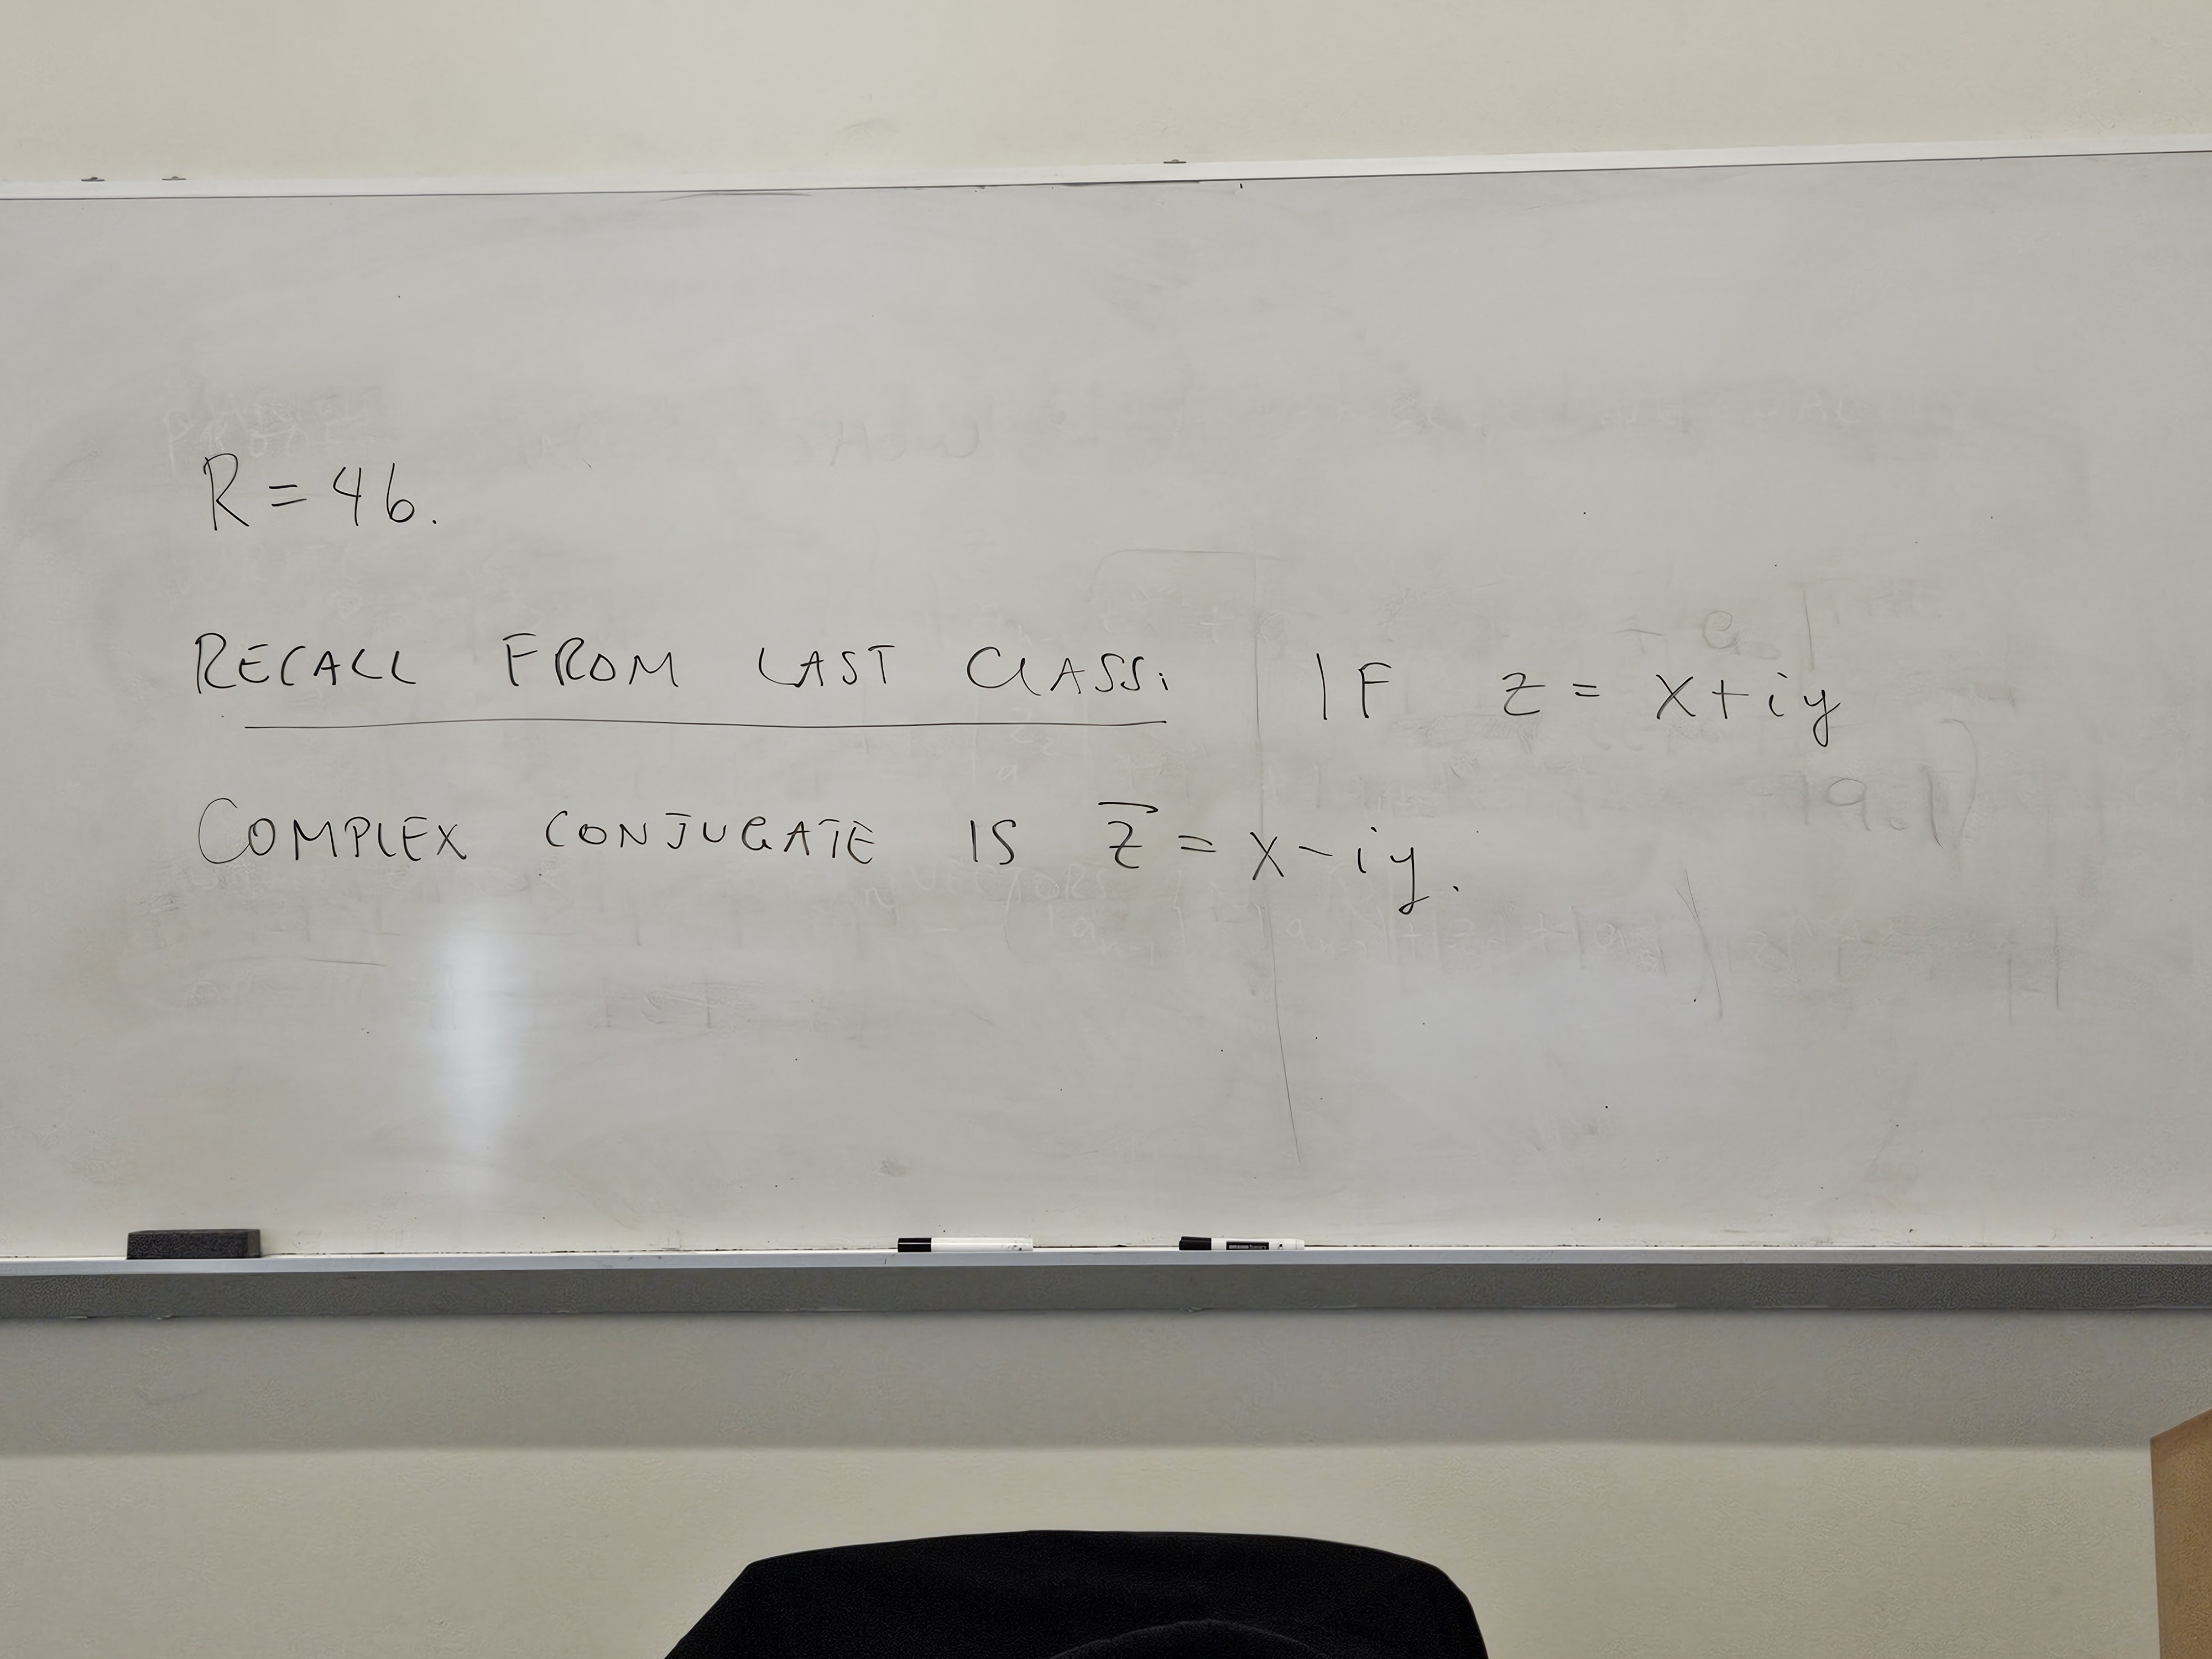 R = 46.
RECALL FROM LAST CLASS: IF z = x + iy
COMPLEX CONJUGATE IS z̅ = x - iy.